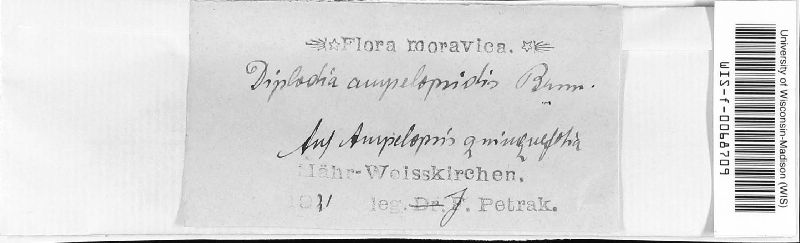 Flora moravica.
Diplodia ampelopsidis Brun.
Auf Ampelopsis quinquefolia
Mähr-Weisskirchen.
leg. Dr. J. Petrak.
University of Wisconsin-Madison (WIS)
WIS-f-0068709